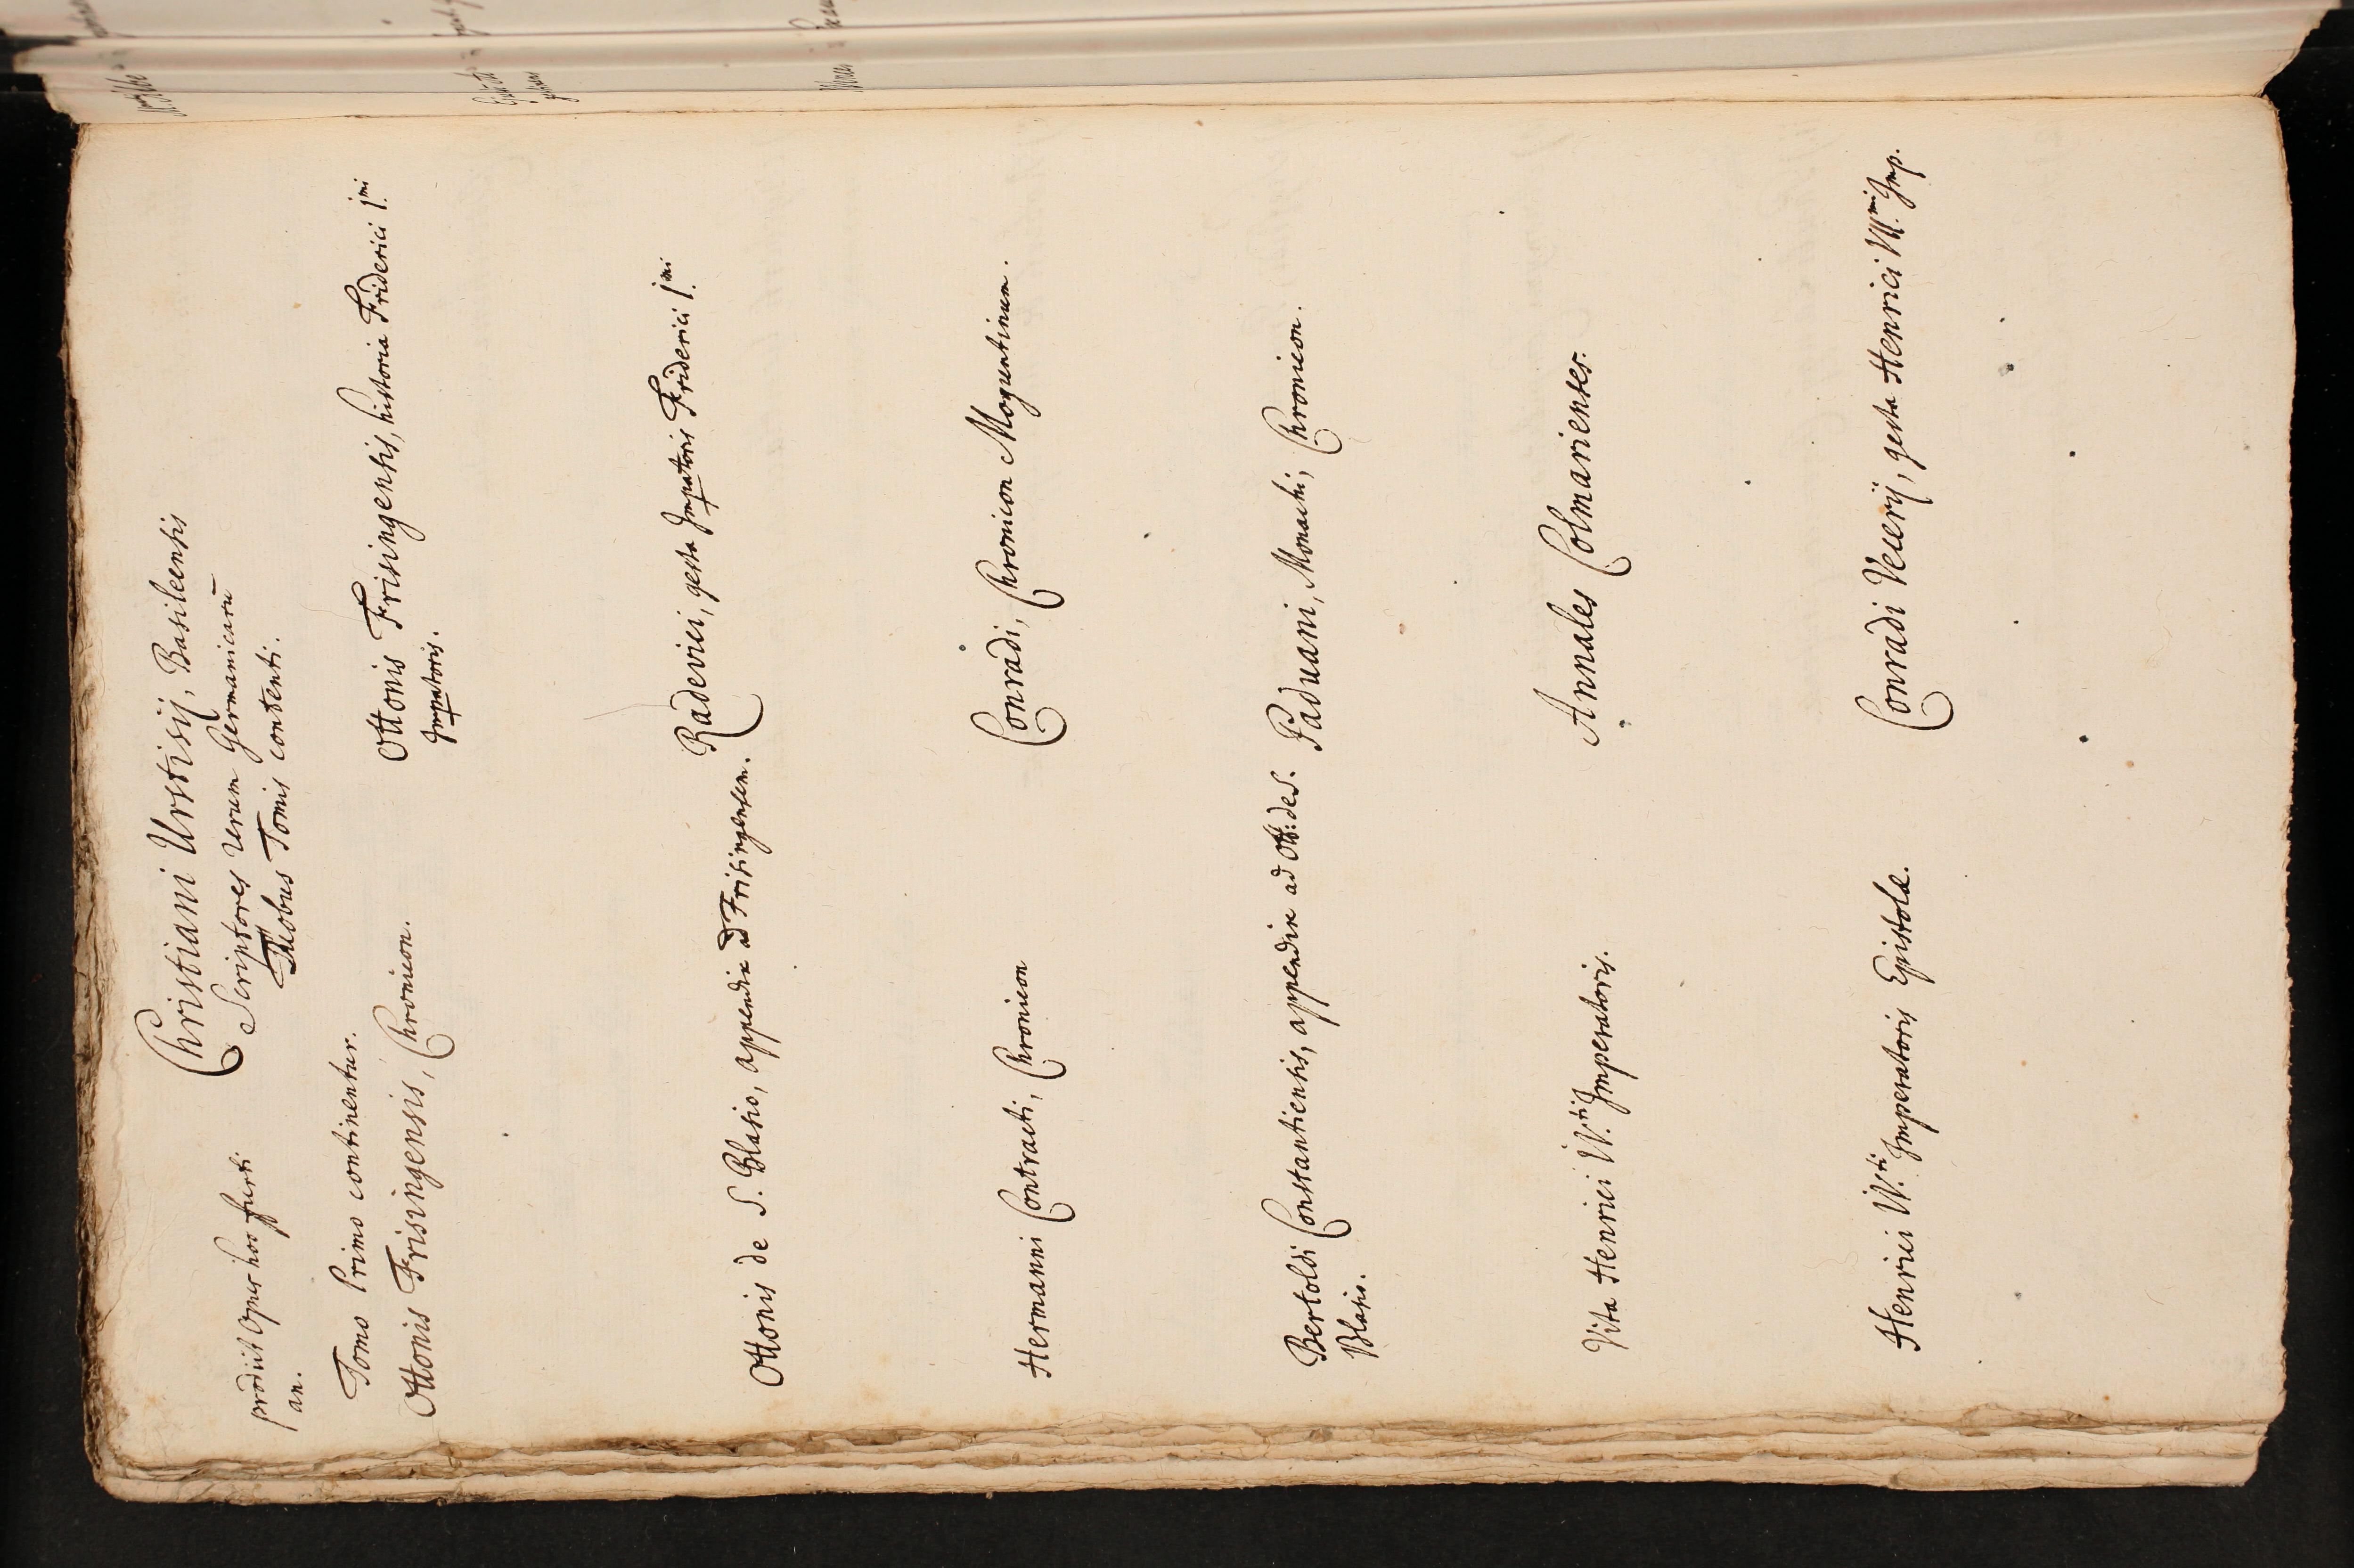 Christiani Urstisij, Basileensis
Scriptores rerum Germanicarū
Duobus Tomis contenti.
prodiit opus hoc
an.
Tomo Primo continentur.
Ottonis Frisingensis, Chronicon.
Ottonis Frisingensis, historia Friderici I.mi
Impatoris.
Ottonis de S. Blasio, appendix ad Frisingensem.
Radevici, gesta Impatoris Friderici I.mi
Hermanni Contracti, Chronicon
Conradi, Chronicon Moguntinum.
Bertoldi Constantiensis, appendix ad Ott: de S.
Blasio.
Paduani, Monachi, Chronicon.
Vita Henrici IV.ti Imperatoris.
Annales Colmarienses.
Henrici IV.ti Imperatoris Epistolæ.
Conradi Vecerij, gesta Henrici VII.mi Imp.